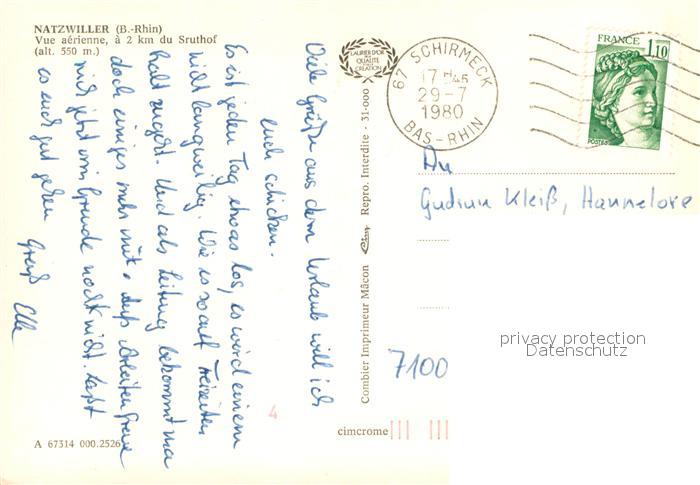 NATZWILLER (B.-Rhin)
Vue aérienne, à 2 km du Sruthof
(alt. 550 m.)
Viele Grüße aus dem Urlaub will ich
euch schicken.
Es ist jeden Tag etwas los, es wird einem
nicht langweilig. Wie es so auf Freizeiten
halt zugeht. Und als Leitung bekommt ma
doch einiges mehr mit. Aufs Arbeiten freue
mich jetzt im Grunde noch nicht. Laßt
es euch gut gehen
Gruß Elle
A 67314 000.2526
LAURIER D'OR
DE LA
QUALITÉ
CRÉATION
Combier Imprimeur Mâcon
Cim
Repro. Interdite - 31-000
cimcrome
4
67 SCHIRMECK
17 H 45
29-7
1980
BAS-RHIN
FRANCE
1,10
POSTES
An
Gudrun Kleiß, Hannelore
7100
privacy protection
Datenschutz